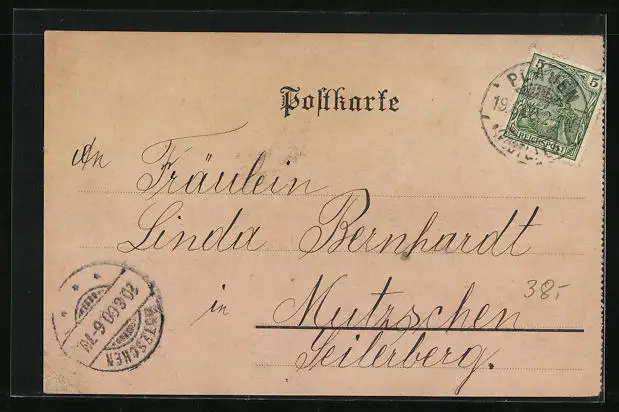 Postkarte
5 5
PLAUEN
19
REICHSPOST
An Fräulein
Linda Bernhardt
in Mutzschen
Seilerberg.
38.-
MUTZSCHEN
20.6.00.6-7N